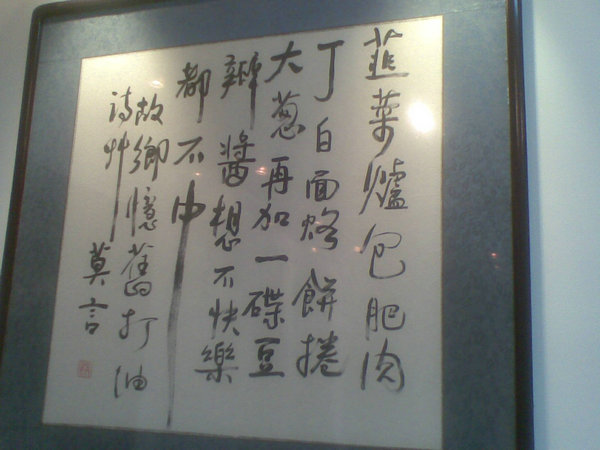 韮菜爐包肥肉
丁白面烙餅捲
大葱再加一碟豆
瓣醬想不快樂
都不中
故鄉憶舊打油
诗艸
莫言